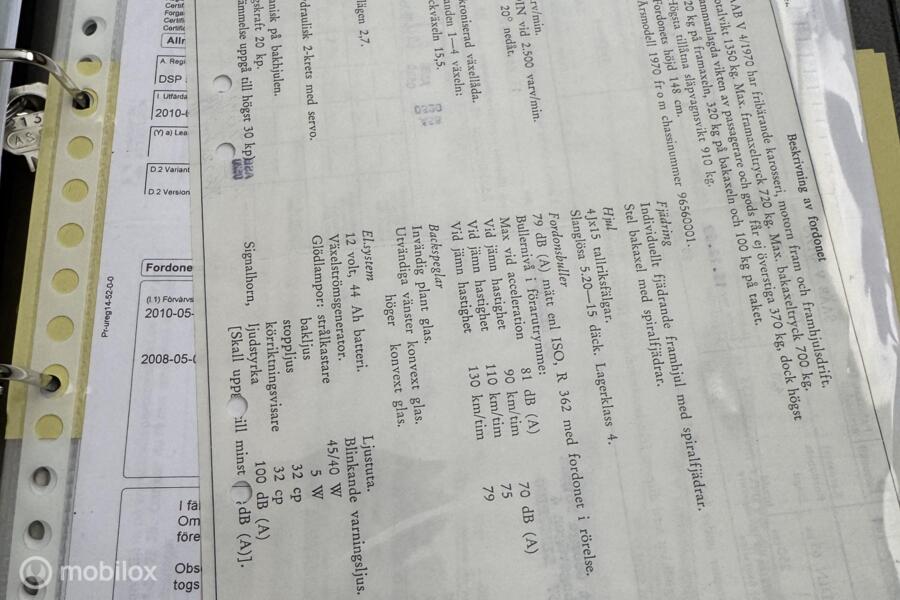 Beskrivning av fordonet
AAB V 4/1970 har fribärande karosseri, motorn fram och framhjulsdrift.
otalvikt 1350 kg. Max. framaxeltryck 720 kg. Max. bakaxeltryck 700 kg.
ammanlagda vikten av passagerare och gods får ej överstiga 370 kg, dock högst
20 kg på framaxeln, 320 kg på bakaxeln och 100 kg på taket.
Högsta tillåtna släpvagnsvikt 910 kg.
Fordonets höjd 148 cm.
Årsmodell 1970 from chassinummer 96560001.
Fjädring
Individuellt fjädrande framhjul med spiralfjädrar.
Stel bakaxel med spiralfjädrar.
Hjul
4Jx15 tallriksfälgar.
Slanglösa 5.20—15 däck. Lagerklass 4.
Fordonsbuller
79 dB (A) mätt enl ISO, R 362 med fordonet i rörelse.
Bullernivå i förarutrymme:
Max vid acceleration 81 dB (A)
Vid jämn hastighet 90 km/tim 70 dB (A)
Vid jämn hastighet 110 km/tim 75
Vid jämn hastighet 130 km/tim 79
Backspeglar
Invändig plant glas.
Utvändiga vänster konvext glas.
höger konvext glas.
El.system
12 volt, 44 Ah batteri.
Växelströmsgenerator.
Glödlampor: strålkastare 45/40 W
bakljus 5 W
stoppljus 32 cp
körriktningsvisare 32 cp
Signalhorn, ljudstyrka 100 dB (A)
[Skall uppg ill minst dB (A)].
Ljustuta.
Blinkande varningsljus.
varv/min.
IN vid 2.500 varv/min.
20° nedåt.
kroniserad växellåda.
anden 1—4 växeln:
ckväxeln 15,5.
lägen 2,7.
draulisk 2-krets med servo.
anisk på bakhjulen.
gskraft 20 kp.
ämmelse uppgå till högst 30 kp
Allr
A. Regi
DSP
I. Utfärda
2010-0
(Y) a) Lea
D.2 Variant
D.2 Version
Fordone
(I.1) Förvärvs
2010-05-
2008-05-0
I fä
Om
före
Obs
togs
mobilox